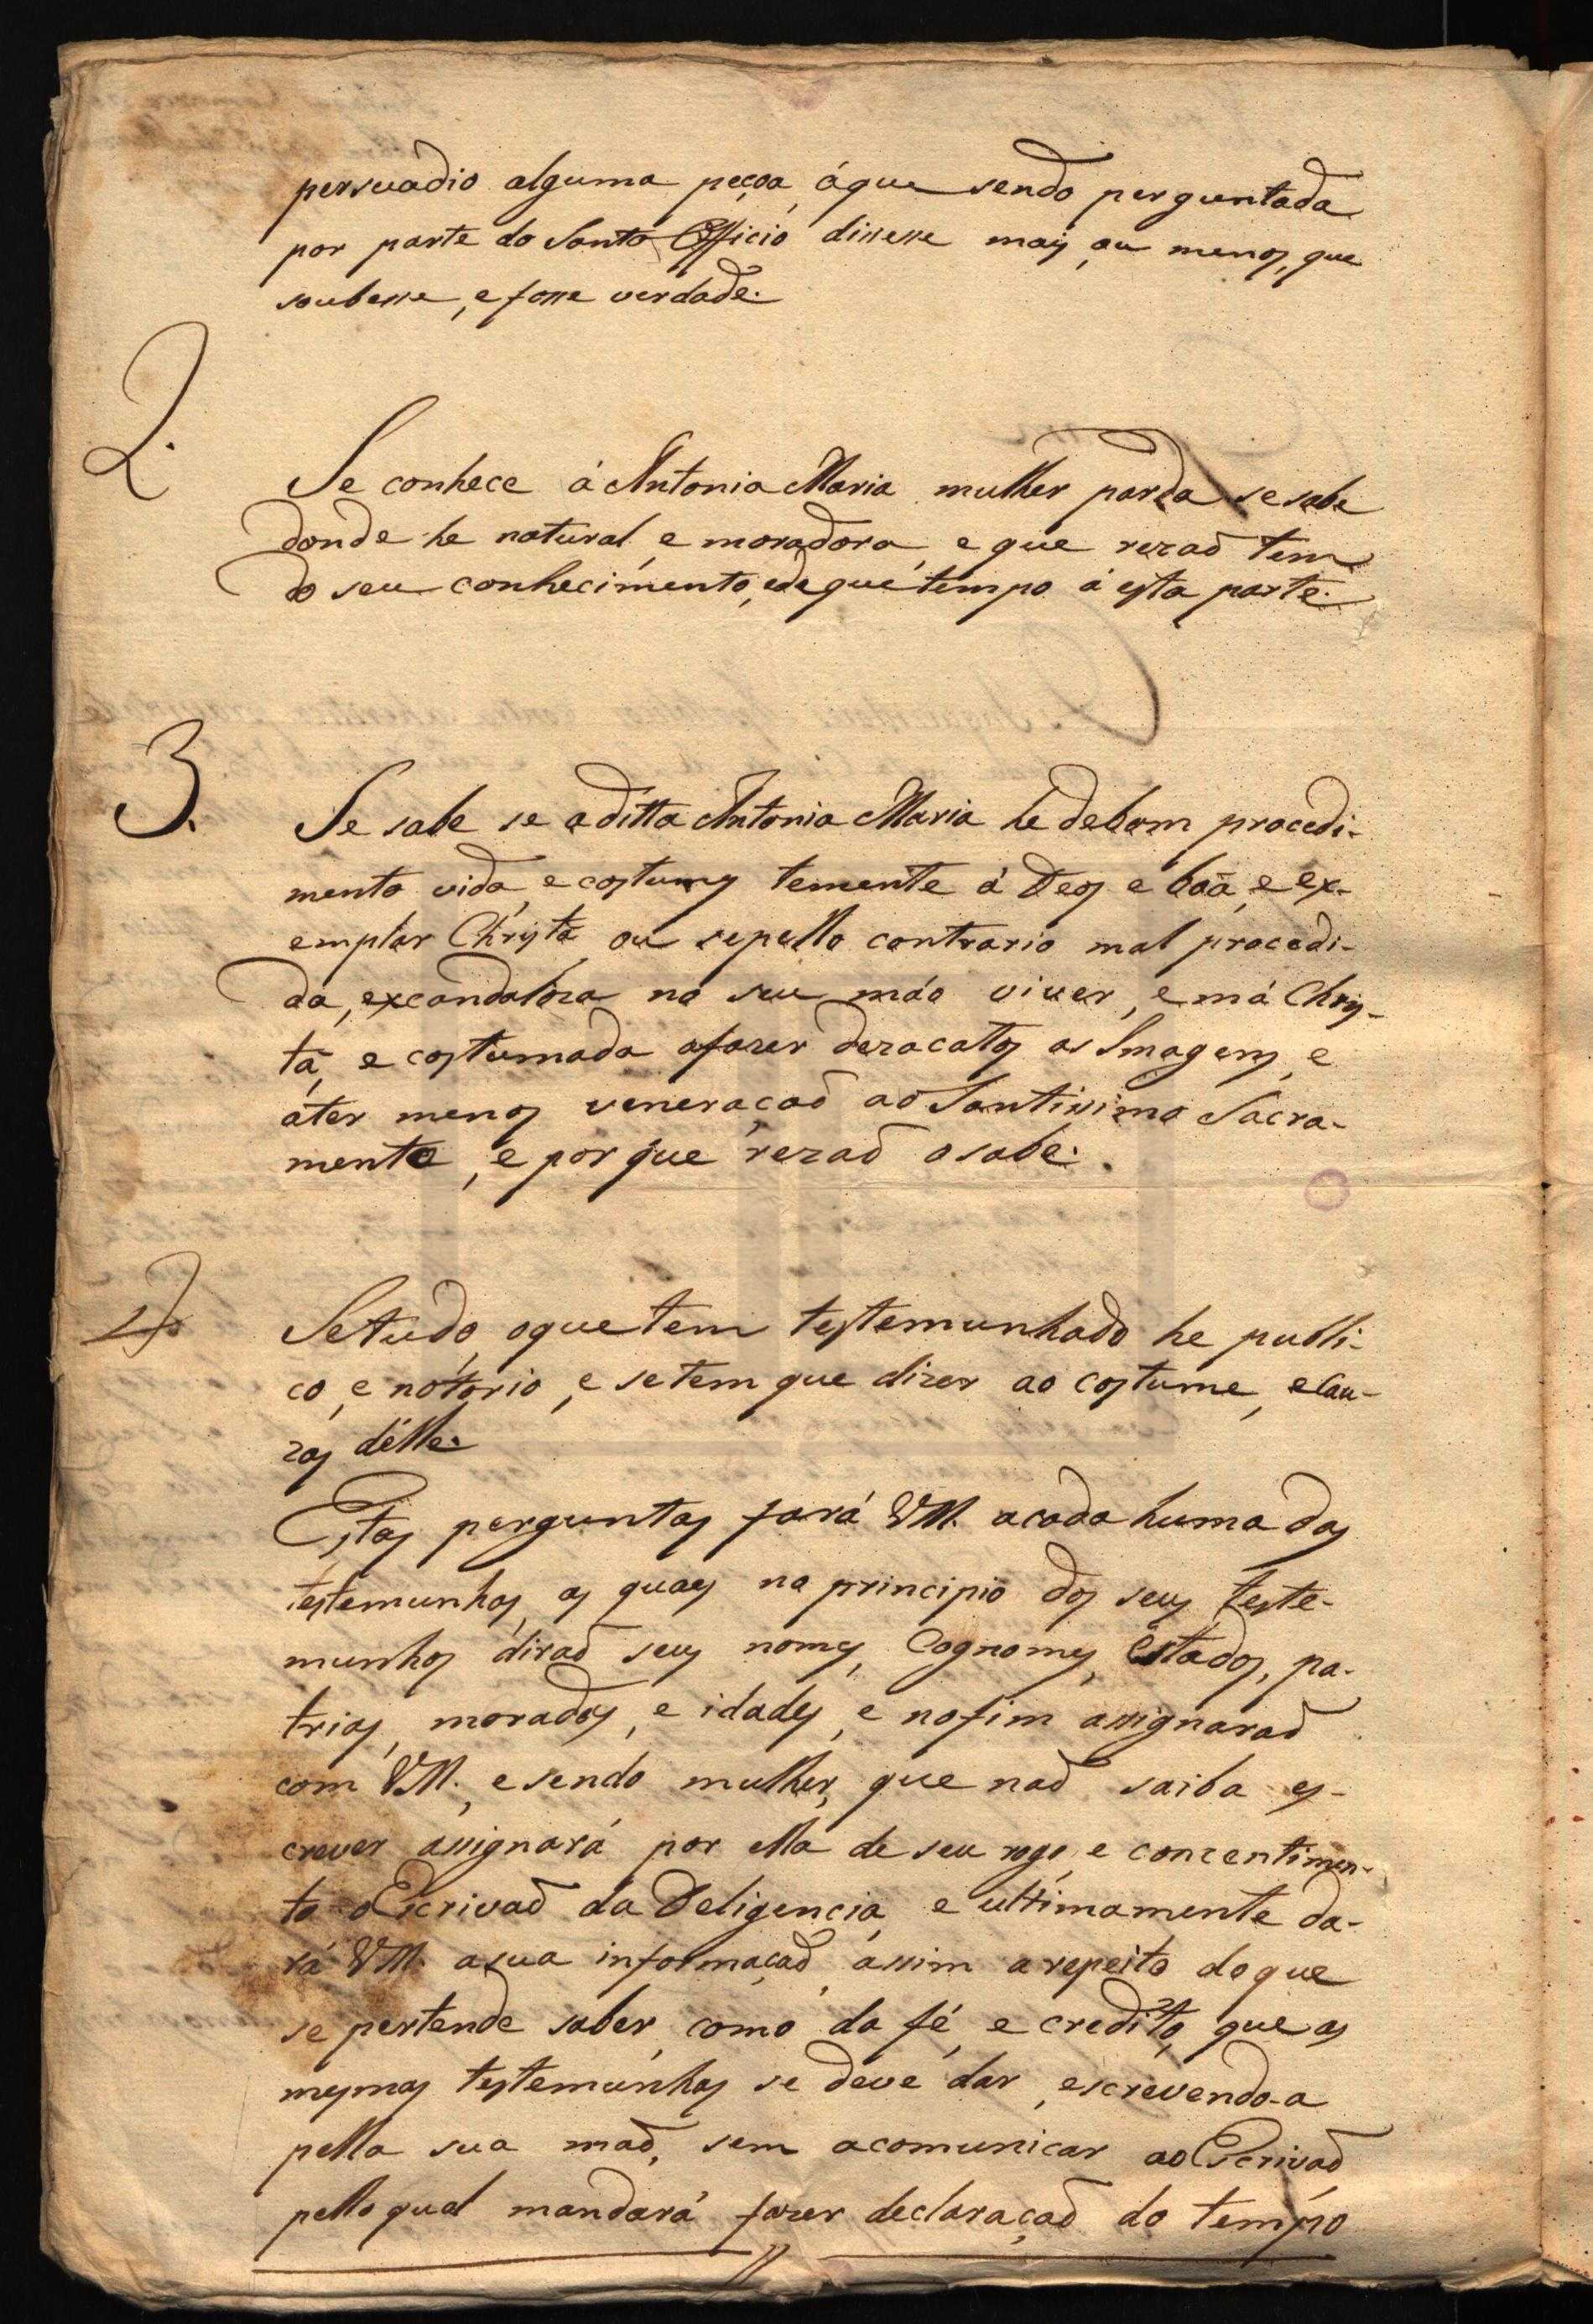 persuadio alguma peçoa, áque sendo perguntada
por parte do Santo Officio dissesse mais, ou menos, que
soubesse, e fosse verdade.
2.
Se conhece á Antonia Maria mulher parda, se sabe
donde he natural, e moradora, e que rezaõ tem
do seu conhecimento, edeque tempo á esta parte.
3.
Se sabe se aditta Antonia Maria he debom procedi-
mento vida, e costumes temente á Deos e boã, e ex-
emplar Christã, ou sepello contrario mal procedi-
da, excandaloza no seu máo viver, emá Chris-
tã, e costumada afazer dezacatos as Imagens, e
áter menos veneraçaõ ao Santissimo Sacra-
mento, e porque rezaõ osabe.
4
Setudo, oquetem testemunhado he publi-
co, e notorio, e setem que dizer ao costume, e Cau-
zas délle.
Estas perguntas fará VM. acada huma das
testemunhas, as quaes no principio dos seus teste-
munhos diraõ seus nomes, Cognomes, Estados, pa-
trias, morados, e idades, e nofim assignaraõ
com VM., e sendo mulher, que naõ saiba es-
crever assignará por ella de seu rogo, e concentimen-
to oEscrivaõ da Deligencia, e ultimamente da-
rá VM. asua informaçaõ, assim arespeito doque
se pertende saber, como da fé, e credito, que as
mesmas testemunhas se deve dar, escrevendo-a
pella sua maõ, sem acomunicar ao Escrivaõ
pelloqual mandará fazer declaraçaõ do tempo